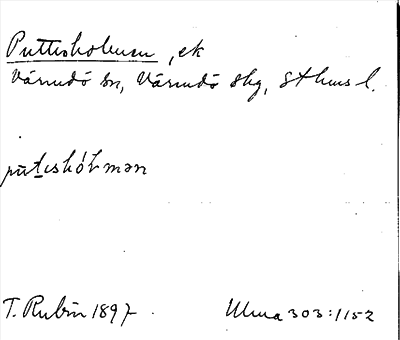 Puttisholmen, ek
Värmdö sn, Värmdö skg, Sthms l.
pùtishólmən
T. Rubin 1897. Ulma 303:1152